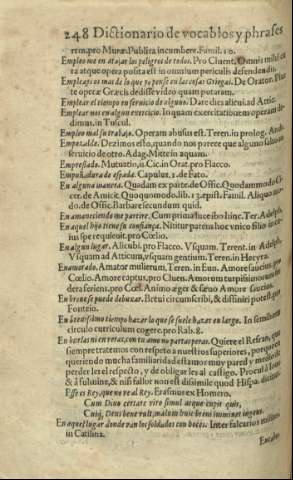 248 Dictionario de vocablos y phrases
rem pro Muræ. Publica incumbere. Famil. 10.
Empleo me en atajar los peligros de todos. Pro Cluent. Omnis mihi
ra atque opera posita est in omnium periculis defendendis.
Empleays os mas de lo que yo pensè en las cosas Griegas. De Orator. Plus
te operæ Græcis dedisse video quam putarem.
Emplear el tiempo en seruicio de alguno. Dare dies alicui ad Attic.
Emplear nos en algun exercicio. In quam exercitationem operam de-
dimus, in Tuscul.
Empleo mal su trabajo. Operam abusus est. Teren. in prolog. Andr.
Emperalde. Dezimos esto, quando nos parece que algun falso en
seruicio de otro. Adag. Mitte in aquam.
Emprestado. Mutuitio, in Cic. in Orat. pro Flacco.
Empuñadura de espada. Capulus, 2. de Fato.
En alguna manera. Quadam ex parte de Offic. Quodammodo Ci-
cer. de Amicit. Quoquomodo, lib. 13. epist. Famil. Aliquo mo-
do, de Offic. Barbare secundum quid.
En amaneciendo me partire. Cum prima luce ibo hinc. Ter. Adelph.
En aquel hijo tiene su confiança. Nititur parens hoc vnico filio in
ius spe requiescit, pro Cœl.
En algun lugar. Alicubi. pro Flacco. Vsquam. Terent. in Adelp.
Vsquam ad Atticum, vsquam gentium. Terent. in Hecyra.
Enamorado. Amator mulierum, Teren. in Eun. Amore
Cœlio. Amore captus, pro Cluen. Amorem turpissimum
dera seriens, pro Cœl. Animo æger & sæuo Amore saucius.
En breue se puede debuxar. Breui circumscribi, & diffiniri potest pro
Fonteio.
En breuissimo tiempo hazer lo que se suele hazer en largo. In simili
circulo curriculum cogere, pro Rab. 8.
En burlas ni en veras, con tu amo no partas peras. Quiere el Refran, que
siempre tratemos con respecto a nuestros superiores, porque en
queriendo mucha familiaridad, estamos muy
perder les el respecto, y de obligarles al castigo. Procul à Ioue
& à fulmine, & nisi fallor non est dissimile quod Hispa. dicitur
Esse es Rey, que no vè al Rey. Erasmus ex Homero.
Cum Diuo certare viro simul atque cupit quis,
Cuiq, Deus bene vult, malum huic breui imminet ingens.
En aquel lugar donde van los soldados con hoces. Inter falcarios
in Catilina.